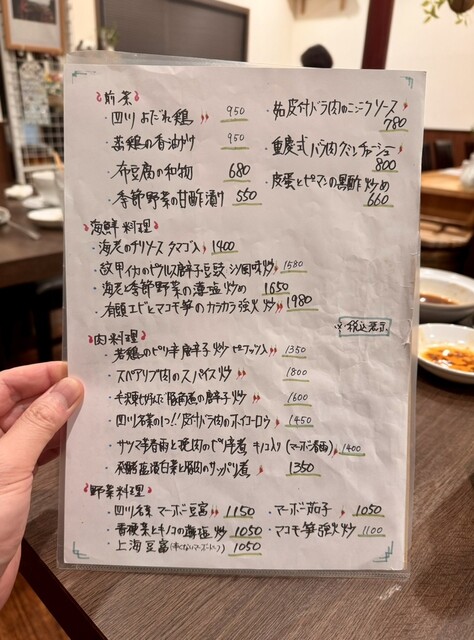 前菜
・四川よだれ鶏 950
・蒸鶏の香油かけ 950
・布豆腐の和物 680
・季節野菜の甘酢漬け 550
・皮付バラ肉のニンニクソース 780
・重慶式バラ肉クミンチャーシュ 800
・皮蛋とピーマンの黒酢炒め 660
海鮮料理
・海老のチリソース タマゴ入 1400
・甲イカのピクルス唐辛子豆豉 炒 1580
・海老と季節野菜の薄塩炒め 1650
・有頭エビとマコモ筍のカラカラ強火炒 1980
※税込表示
肉料理
・若鶏のピリ辛唐辛子炒 ピーナッツ入 1350
・スペアリブ肉のスパイス炒 1800
・豚角煮の唐辛子炒 1600
・四川名菜の1つ!!皮付バラ肉のホイコーロウ 1450
・サツマ芋春雨と挽肉のピリ辛煮 キノコ入り(マーボー春雨) 1400
・発酵塩漬白菜と豚肉のサッパリ煮 1350
野菜料理
・四川名菜 マーボー豆腐 1150
・青梗菜とキノコの薄塩炒 1050
・上海豆腐(辛くないマーボードーフ) 1050
・マーボー茄子 1050
・マコモ筍強火炒 1100